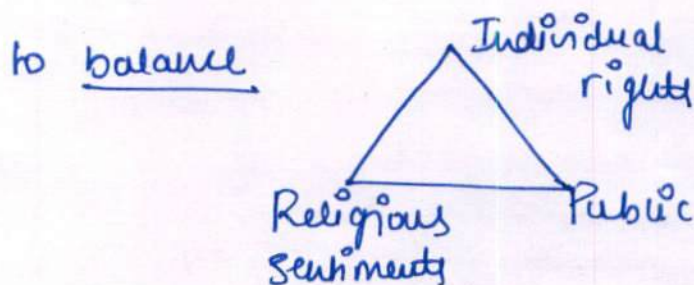 to balance
Individual
rights
Religious
sentiments
Public